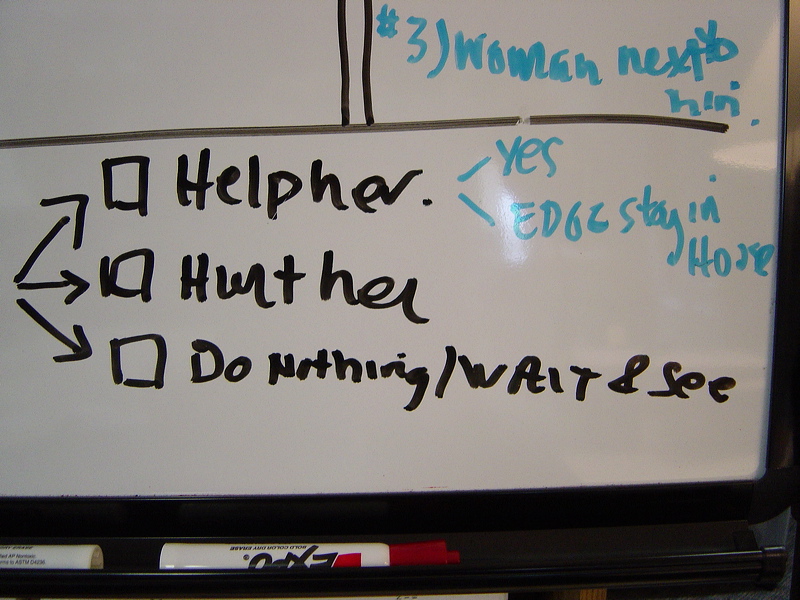 #3) Woman next to
him.
Help her.
Yes
EDGE stay in
House
Hurt her
Do Nothing/WAIT & See
BOLD COLOR DRY ERASE
EXPO
to ASTM D4236